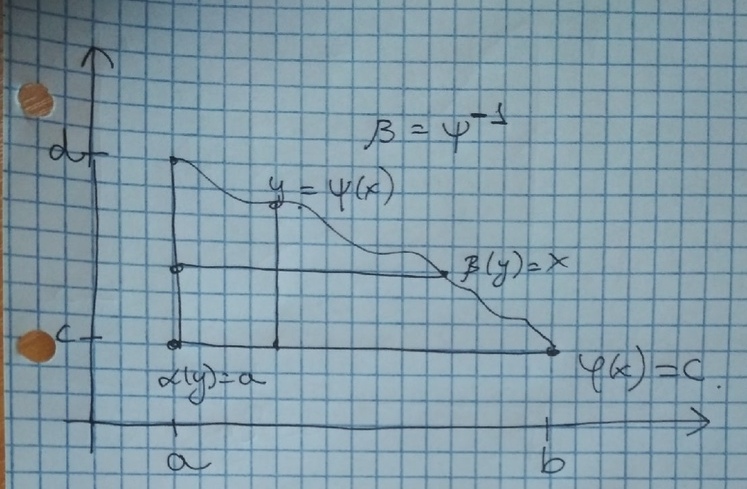 β = ψ⁻¹
d
y = ψ(x)
β(y)=x
c
α(y)=a
φ(x)=c.
a
b